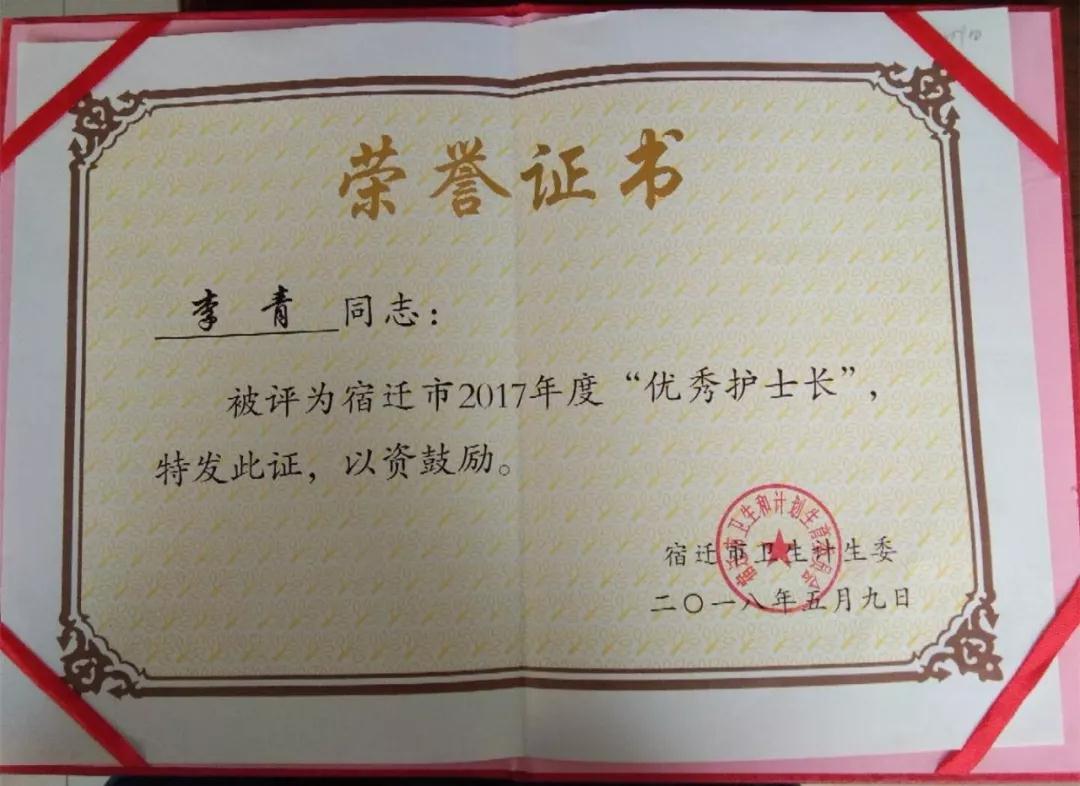 荣誉证书
李青同志：
被评为宿迁市2017年度“优秀护士长”，
特发此证，以资鼓励。
宿迁市卫生和计划生育委员会
宿迁市卫生计生委
二〇一八年五月九日